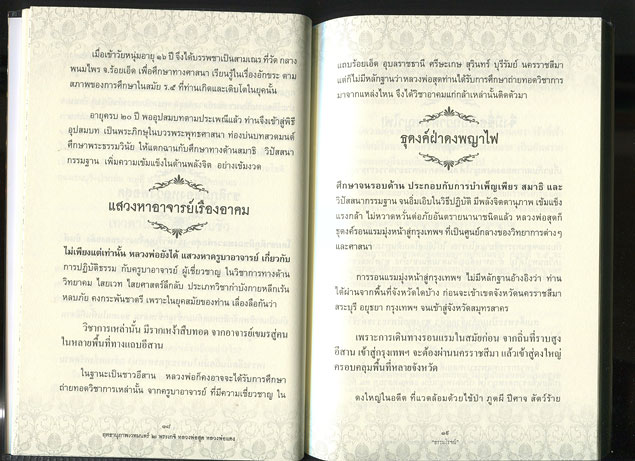 เมื่อเข้าวัยหนุ่มอายุ ๑๖ ปี จึงได้บรรพชาเป็นสามเณร ที่วัด กลาง
พนมไพร จ.ร้อยเอ็ด เพื่อศึกษาทางศาสนา เรียนรู้ในเรื่องอักขระ ตาม
สภาพของการศึกษาในสมัย ร.๕ ที่ท่านเกิดและเติบโตในยุคนั้น
อายุครบ ๒๐ ปี พออุปสมบทตามประเพณีแล้ว ท่านจึงเข้าสู่พิธี
อุปสมบท เป็นพระภิกษุในบวรพระพุทธศาสนา ท่องบ่นบทสวดมนต์
ศึกษาพระธรรมวินัย ให้แตกฉานกับศึกษาทางด้านสมาธิ วิปัสสนา
กรรมฐาน เพิ่มความเข้มแข็งในด้านพลังจิต อย่างเข้มงวด
แสวงหาอาจารย์เรืองอาคม
ไม่เพียงแต่เท่านั้น หลวงพ่อยังได้ แสวงหาครูบาอาจารย์ เกี่ยวกับ
การปฏิบัติธรรม กับครูบาอาจารย์ ผู้เชี่ยวชาญ ในวิชาการทางด้าน
วิทยาคม ไสยเวท ไสยศาสตร์ลึกลับ ประเภทวิชากำบังกายหลีกเร้น
หลบภัย คงกระพันชาตรี เพราะในยุคสมัยของท่าน เลื่องลือกันว่า
วิชาการเหล่านั้น มีรากเหง้าสืบทอด จากอาจารย์เขมรสู่คน
ในหลายพื้นที่ทางแถบอีสาน
ในฐานะเป็นชาวอีสาน หลวงพ่อก็คงอาจจะได้รับการศึกษา
ถ่ายทอดวิชาการเหล่านั้น จากครูบาอาจารย์ ที่มีความเชี่ยวชาญ ใน
๑๘
แถบร้อยเอ็ด อุบลราชธานี ศรีษะเกษ สุรินทร์ บุรีรัมย์ นครราชสีมา
แต่ก็ไม่มีหลักฐานว่าหลวงพ่อสุดท่านได้รับการศึกษาถ่ายทอดวิชาการ
มาจากแหล่งไหน จึงได้วิชาอาคมแก่กล้าเหล่านั้นติดตัวมา
ธุดงค์ฝ่าดงพญาไฟ
ศึกษาจนรอบด้าน ประกอบกับการบำเพ็ญเพียร สมาธิ และ
วิปัสสนากรรมฐาน จนอิ่มเอิบในวิถีปฏิบัติ มีพลังจิตตานุภาพ เข้มแข็ง
แรงกล้า ไม่หวาดหวั่นต่อภัยอันตรายนานาชนิดแล้ว หลวงพ่อสุดก็
ธุดงค์รอนแรมมุ่งหน้าสู่กรุงเทพฯ ที่เป็นศูนย์กลางของวิทยาการต่างๆ
และศาสนา
การรอนแรมมุ่งหน้าสู่กรุงเทพฯ ไม่มีหลักฐานอ้างอิงว่า ท่าน
ได้ผ่านจากพื้นที่จังหวัดใดบ้าง ก่อนจะเข้าเขตจังหวัดนครราชสีมา
สระบุรี อยุธยา กรุงเทพฯ จนเข้าสู่จังหวัดสมุทรสาคร
เพราะการเดินทางรอนแรมในสมัยก่อน จากถิ่นที่ราบสูง
อีสาน เข้าสู่กรุงเทพฯ จะต้องผ่านนครราชสีมา แล้วเข้าสู่ดงใหญ่
ครอบคลุมพื้นที่หลายจังหวัด
ดงใหญ่ในอดีต ที่แวดล้อมด้วยไข้ป่า ภูตผี ปีศาจ สัตว์ร้าย
๑๙